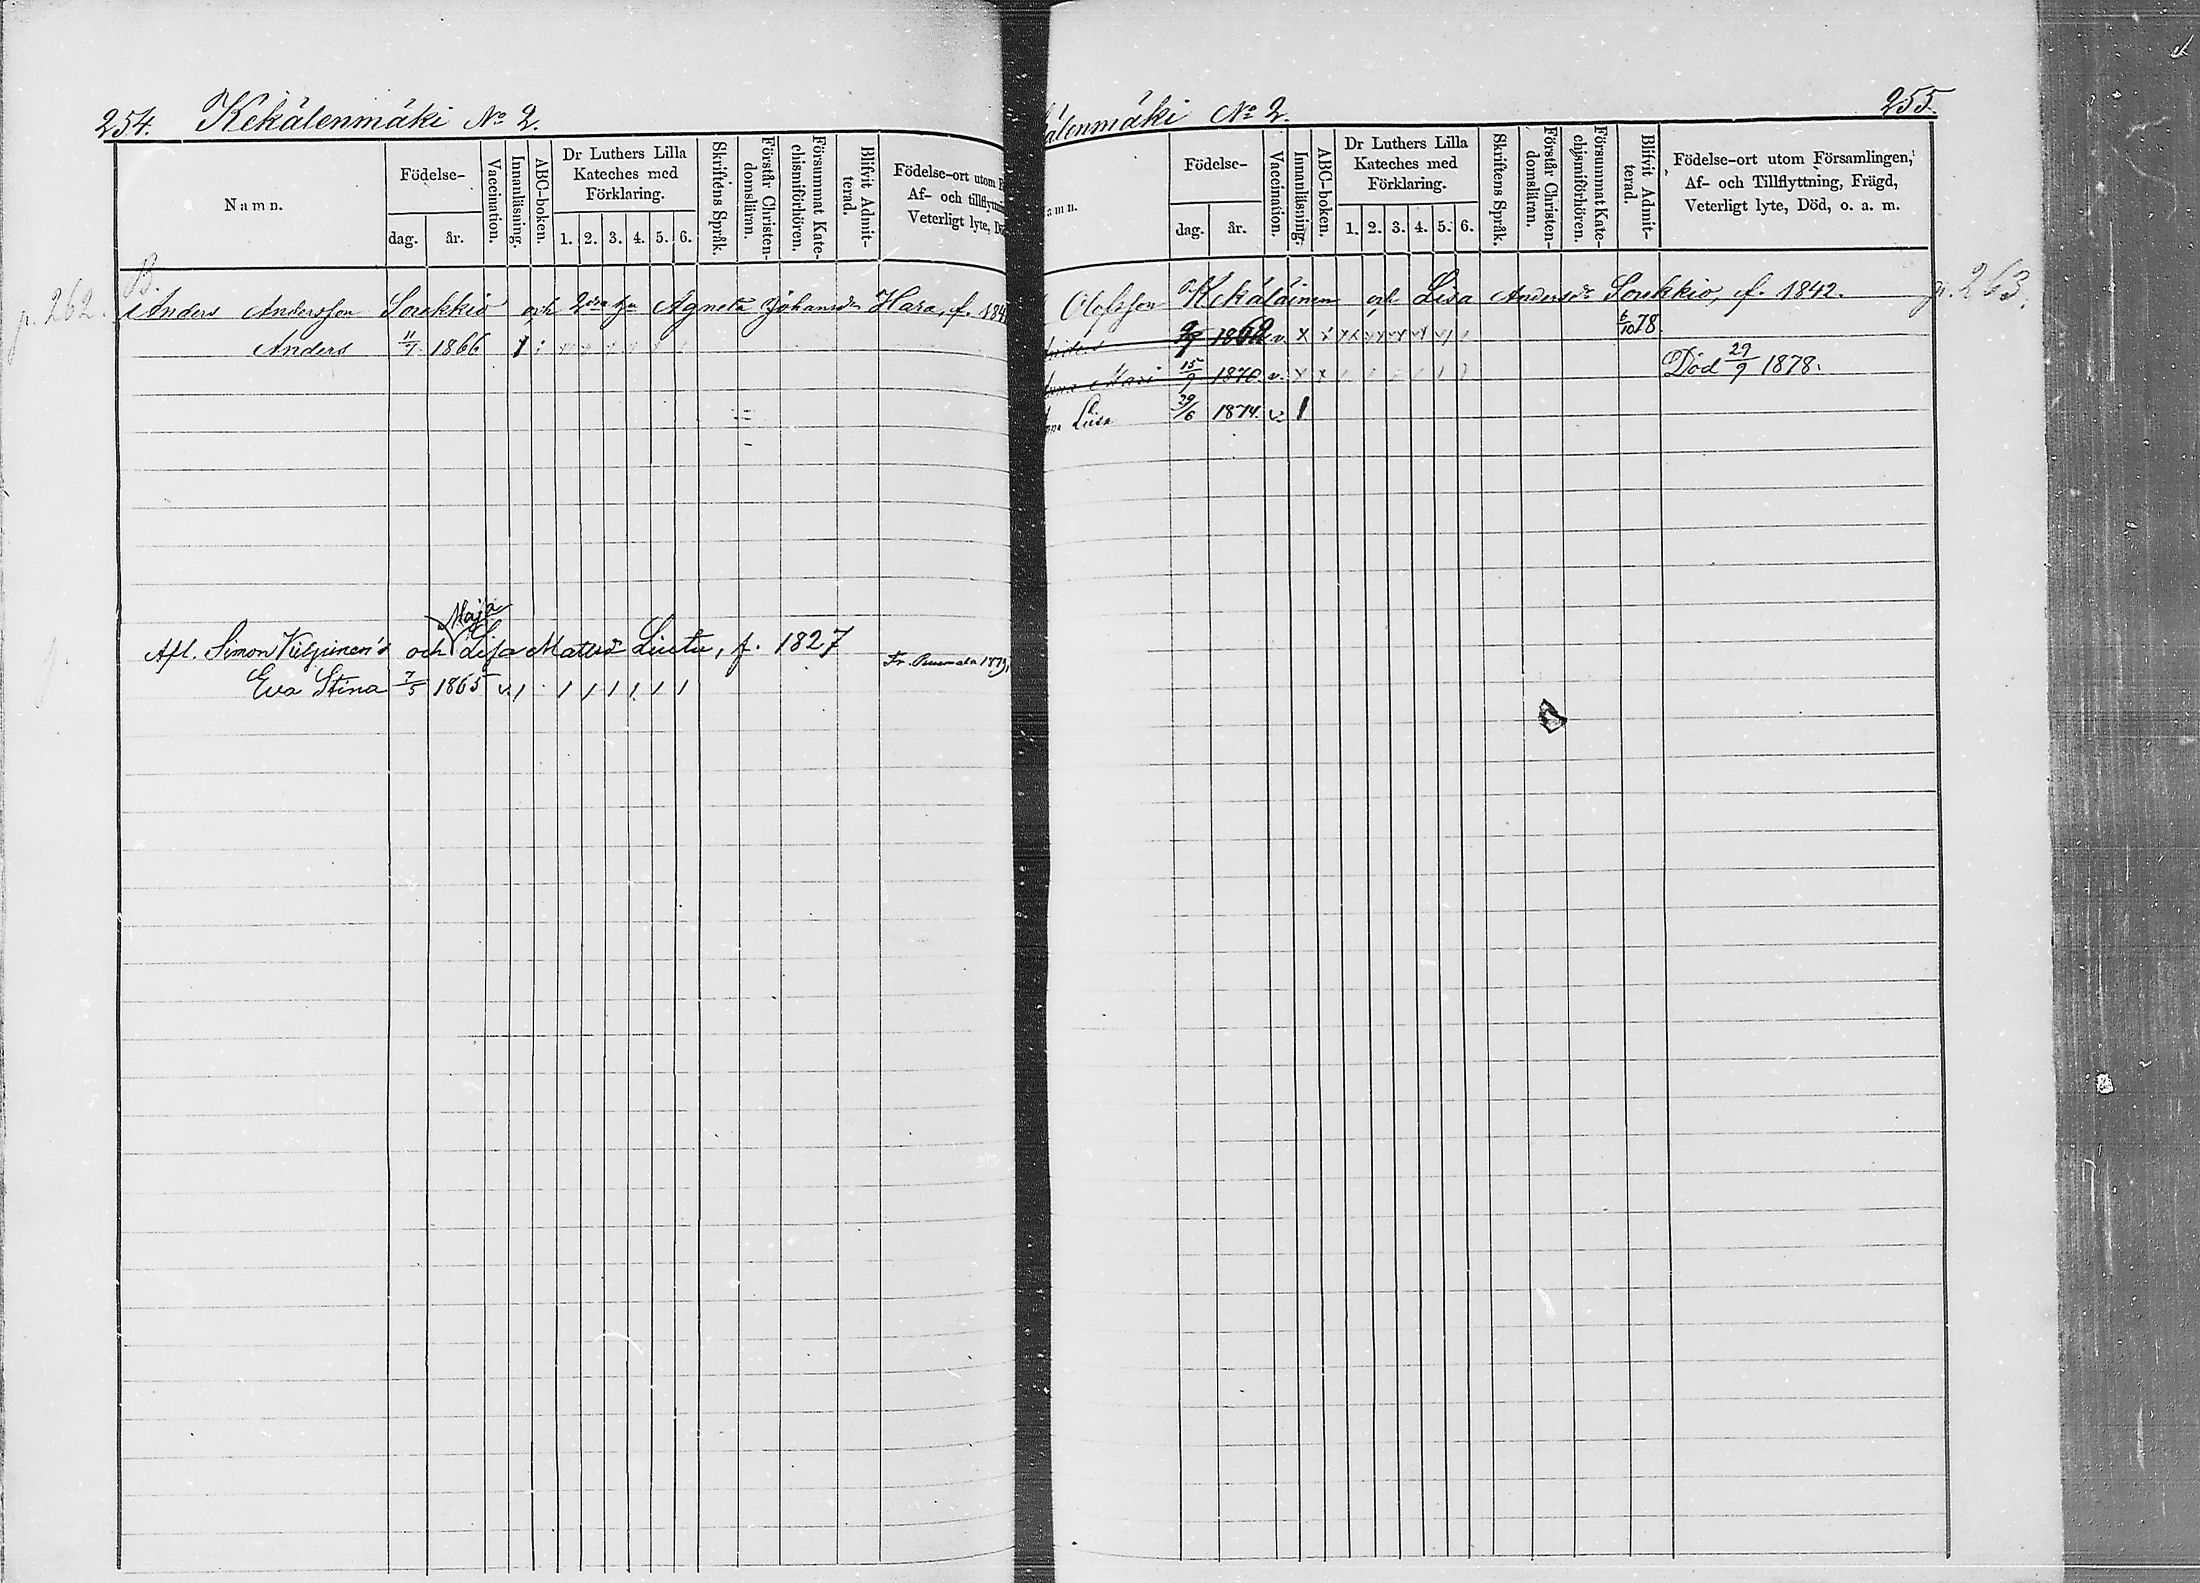 254. Kekälenmäki No 2.
Namn.
Födelse-
dag.
år.
Vaccination.
Innanläsning.
ABC-boken.
Dr Luthers Lilla
Kateches med
Förklaring.
1. 2. 3. 4. 5. 6.
Skriftens Språk.
Förstår Christen-
domsläran.
Försummat Kate-
chismiförhören.
Blifvit Admit-
terad.
Födelse-ort utom
Af- och tillflyttn
Veterligt lyte, Dö
p. 262.
B.
Anders Andersson Soukkio och 2dra hu Agneta Johansdr Hara, f. 184
Anders 11/7 1866
Maja
Afl. Simon Kilpinen's och Lisa Matsdr Liutu, f. 1827
Eva Stina 7/5 1865 v.
Fr. 1879
älenmäki No 2.
255.
amn.
Födelse-
dag.
år.
Vaccination.
Innanläsning.
ABC-boken.
Dr Luthers Lilla
Kateches med
Förklaring.
1. 2. 3. 4. 5. 6.
Skriftens Språk.
Förstår Christen-
domsläran.
Försummat Kate-
chismiförhören.
Blifvit Admit-
terad.
Födelse-ort utom Församlingen,
Af- och Tillflyttning, Frägd,
Veterligt lyte, Död, o. a. m.
Olofsson Kekäläinen och Lisa Andersdr Soukkio, f. 1842.
p. 263.
1862 v. 6/10 78
15/9 1870 v. Död 29/9 1878.
Liisa 29/6 1874 v.